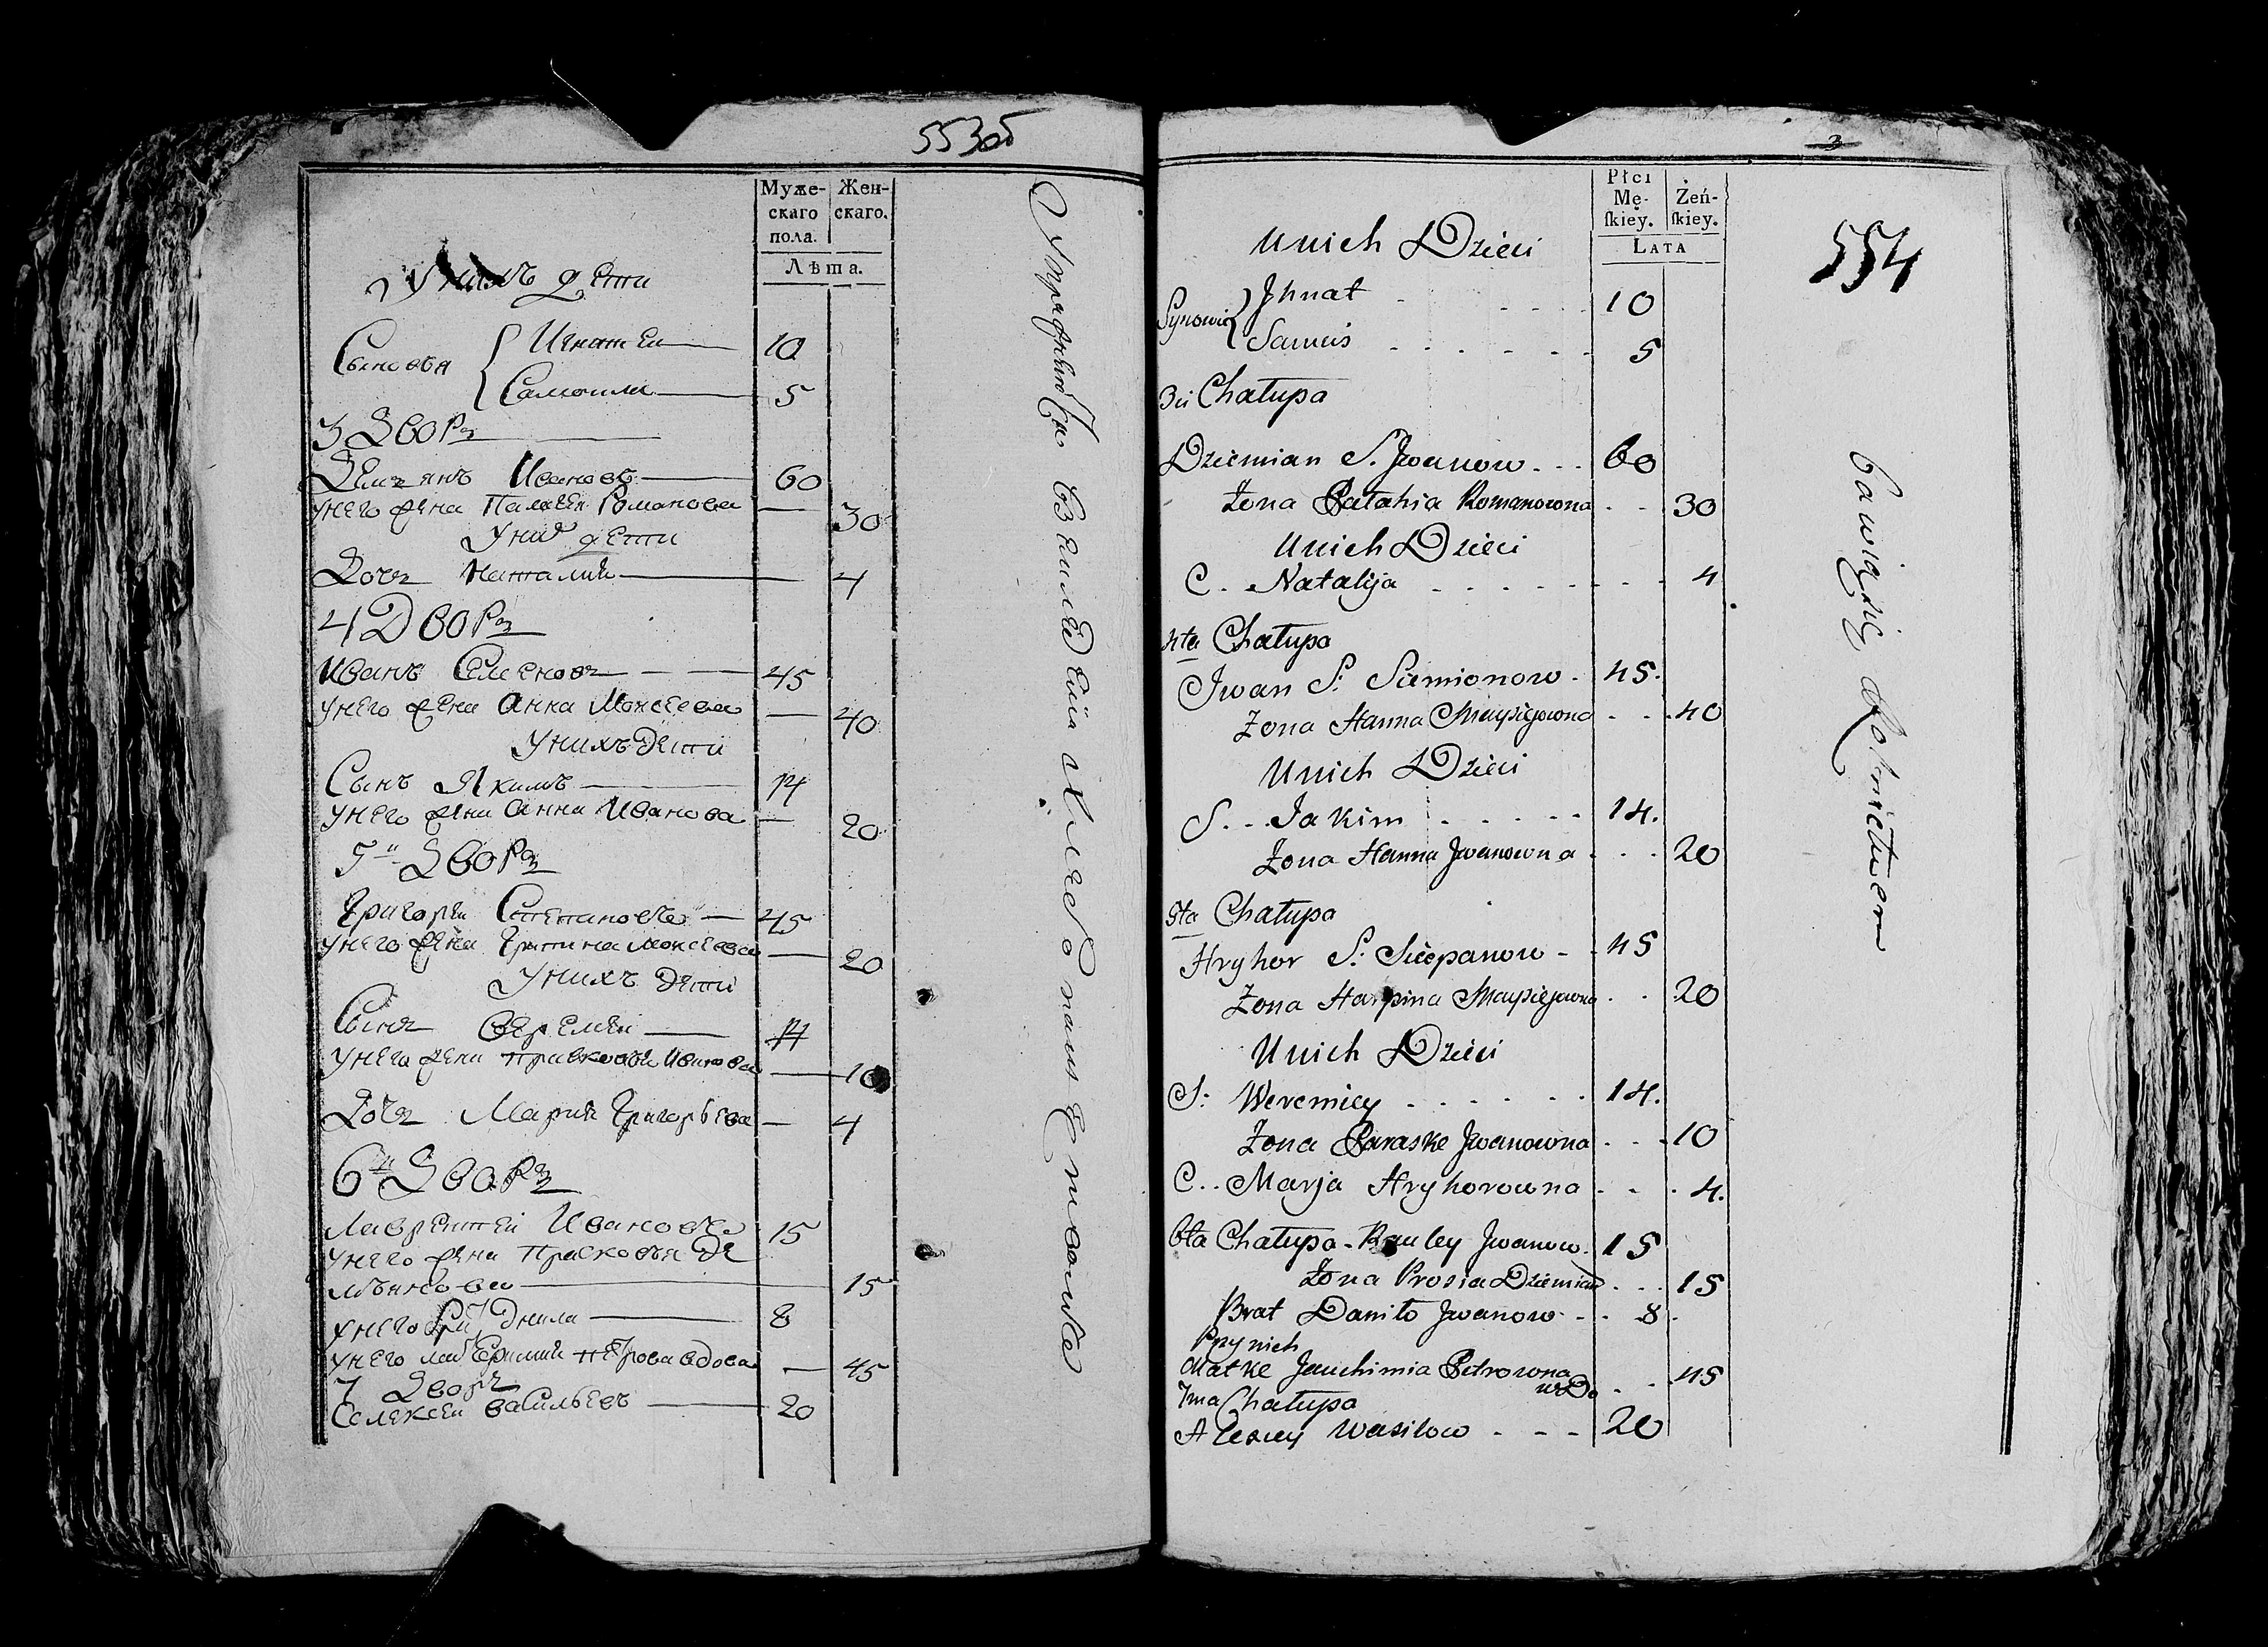 553об
Муже-
скаго
пола.
Жен-
скаго.
Лѣта.
У нихъ дети
Сыновья
Игнатеи 10
Самоила 5
3 Дворъ
Демъянъ Ивановъ 60
унего жена Палагея Романова 30
Уних дети
Дочь Наталия 4
4 Дворъ
Иванъ Семеновъ 45
унего жена Анна Моисеева 40
Унихъ дети
Сынъ Якимъ 14
унего жена Анна Иванова 20
5й Дворъ
Григореи Степановъ 45
унего жена Моисеева 20
Унихъ дети
Сынъ Веремеи 14
унего жена Прасковья Иванова 10
Дочь Мария Григорьева 4
6й Дворъ
Лаврентеи Ивановъ 15
унего жена Прасковья Де
мьянова 15
унего Днила 8
унего Петрова вдова 45
7 Дворъ
Селексеи Васильевъ 20
Упражняются в земледелии
3
554
Płci
Mę-
ſkiey.
Żeń-
ſkiey.
LATA
Unich Dzieci
Synowie
Jhnat 10
Samuś 5
3ci Chałupa
Dziemian S. Jwanow 60
Żona Pałahia Romanowna 30
Unich Dzieci
C. Natalija 4
4ta Chałupa
Jwan S: Siemionow 45.
Żona Hanna Maysiejowna 40
Unich Dzieci
S. Jakim 14.
Żona Hanna Jwanowna 20
5ta Chałupa
Hryhor S: Sciepanow 45
Żona Harpina Maysiejowna 20
Unich Dzieci
S: Weremiey 14.
Żona Paraske Jwanowna 10
C. Marja Hryhorowna 4.
6ta Chałupa Jwanow 15
Żona Prosia Dziemian 15
Brat Daniło Jwanow 8.
Przynich
Matke Jauchimia Petrowna
wDo 45
7ma Chałupa
Alexiey Wasilow 20
bawią się Rolnictwem